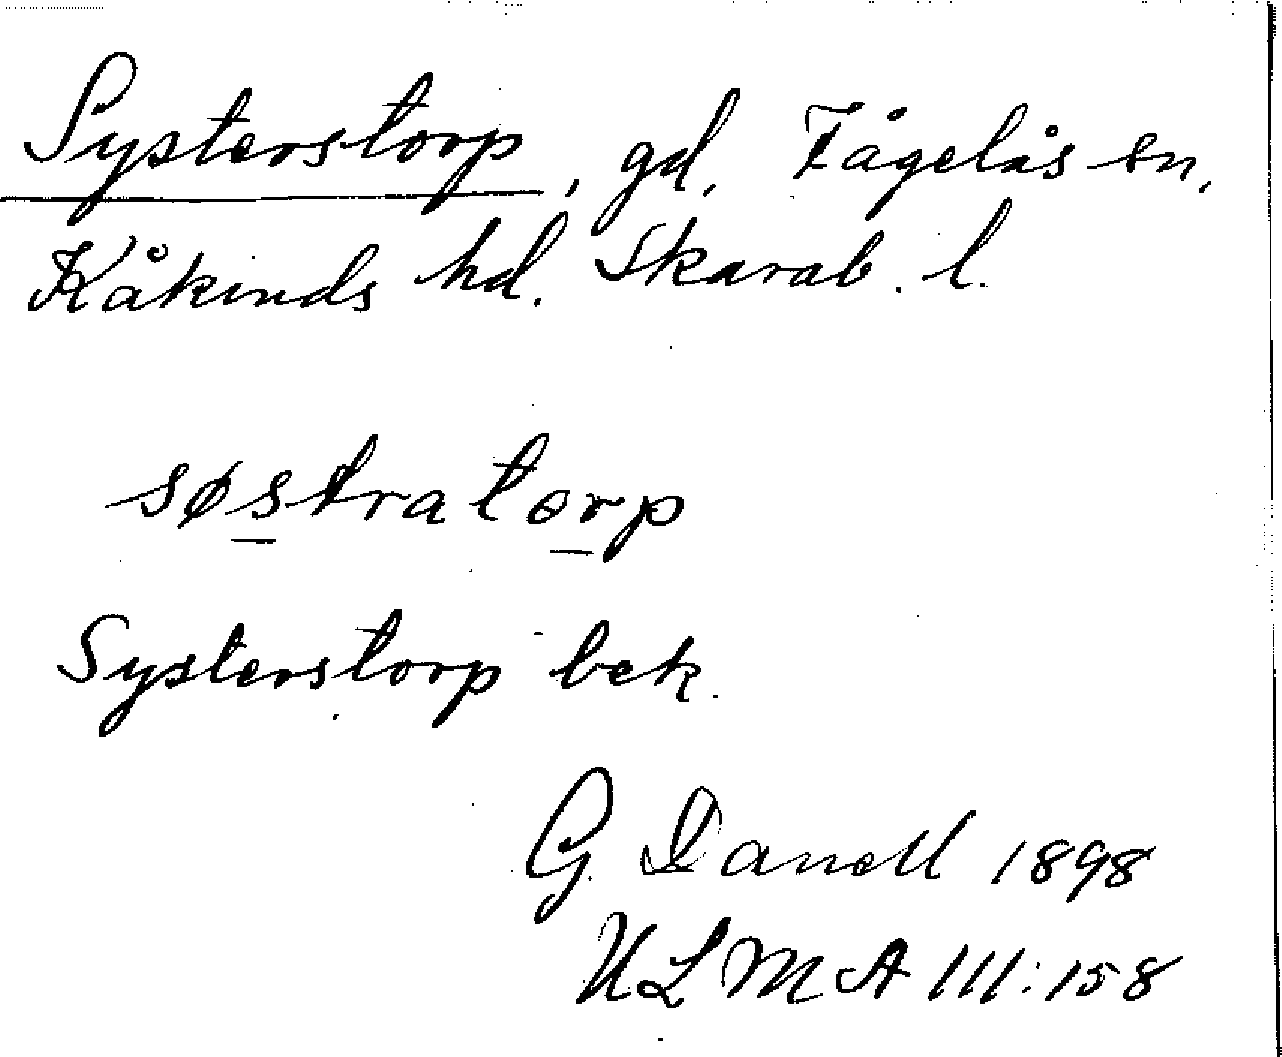 Systerstorp, gd, Fågelås sn,
Kåkinds hd. Skarab. l.
søstratorp
Systerstorp bek.
G. Danell 1898
ULMA 111:158